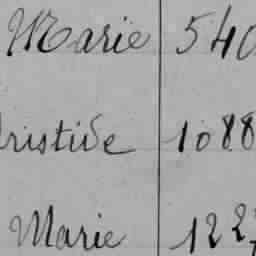 Marie 540
ristide 1088
Marie 122